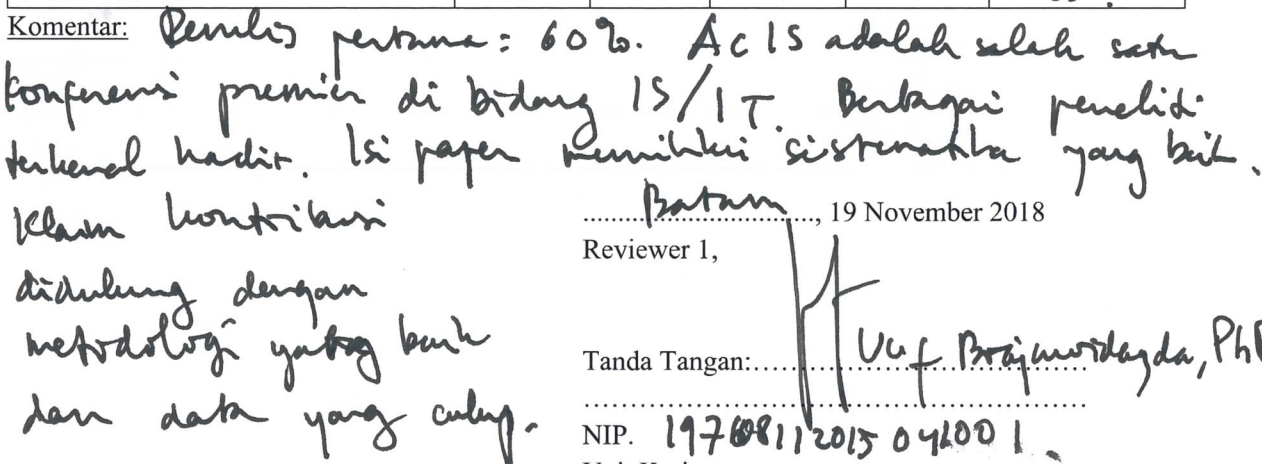 Komentar: Penulis pertama = 60%. ACIS adalah salah satu
konferensi premier di bidang IS/IT. Berbagai peneliti
terkenal hadir. Isi paper memiliki sistematika yang baik.
Klaim kontribusi
didukung dengan
metodologi yang baik
dan data yang cukup.
Batam, 19 November 2018
Reviewer 1,
Tanda Tangan: Uuf Brajawidagda, PhD
NIP.